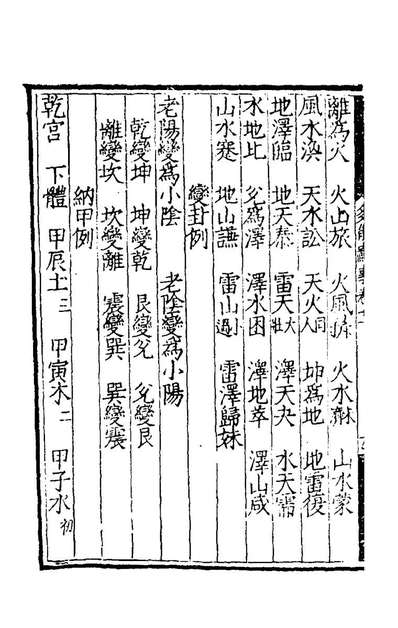 離為火 火山旅 火風鼎 火水 山水蒙
風水渙 天水訟 天火同人 坤為地 地雷復
地澤臨 地天泰 雷天大壯 澤天夬 水天需
水地比 兌為澤 澤水困 澤地萃 澤山咸
山水蹇 地山謙 雷山小過 雷澤歸妹
變卦例
老陽變為小陰 老陰變為小陽
乾變坤 坤變乾 艮變兌 兌變艮
離變坎 坎變離 震變巽 巽變震
納甲例
乾宮 下體 甲辰土三 甲寅木二 甲子水初